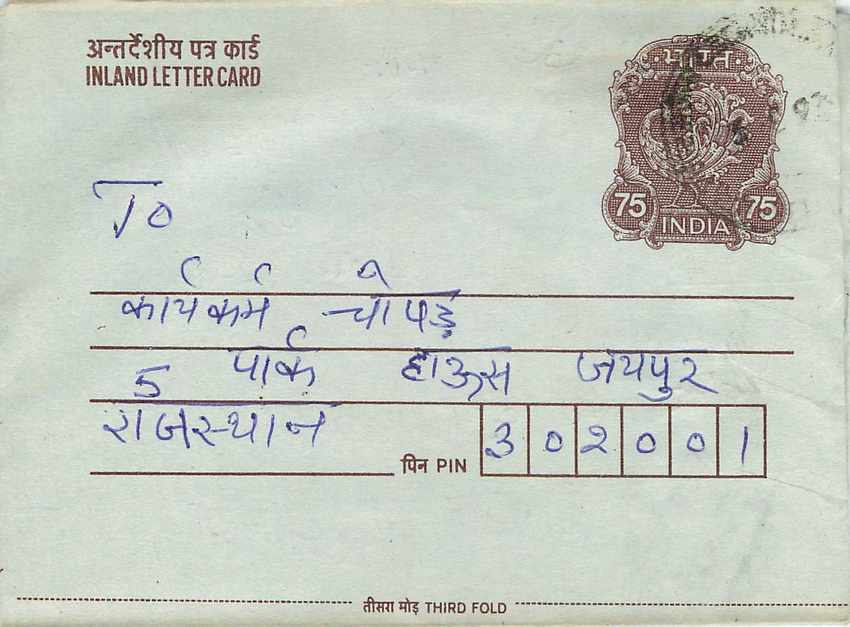 अन्तर्देशीय पत्र कार्ड
INLAND LETTER CARD
भारत
75 75
INDIA
To
कार्यकर्म चोपड़
5 पार्क हाऊस जयपुर
राजस्थान
पिन PIN 302001
तीसरा मोड़ THIRD FOLD